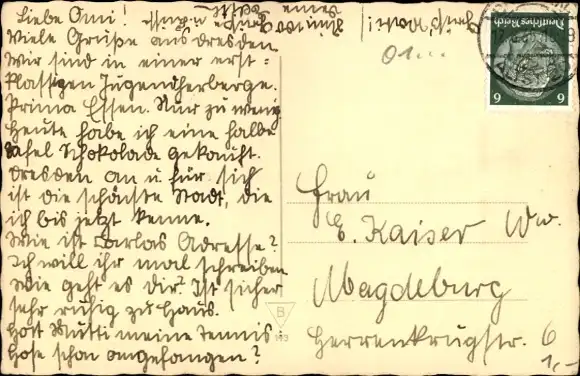 Liebe Omi!
Viele Grüße aus Dresden
Wir sind in einer erst=
klassigen Jugendherberge.
Prima Essen. Nur zu wenig
Heute habe ich eine halbe
Tafel Schokolade gekauft.
Dresden an u. für sich
ist die schönste Stadt, die
ich bis jetzt kenne.
Wie ist Carlas Adresse?
Ich will ihr mal schreiben
Wie geht es dir. Ist sicher
sehr ruhig zu Haus.
Hat Mutti meine Tennis
hose schon angefangen?
Frau
E. Kaiser Ww.
Magdeburg
Herrenkrugstr. 6
1,-
Deutsches Reich
6 6
B
193